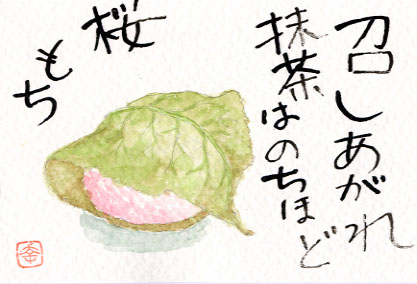 召しあがれ
抹茶はのちほど
桜
もち